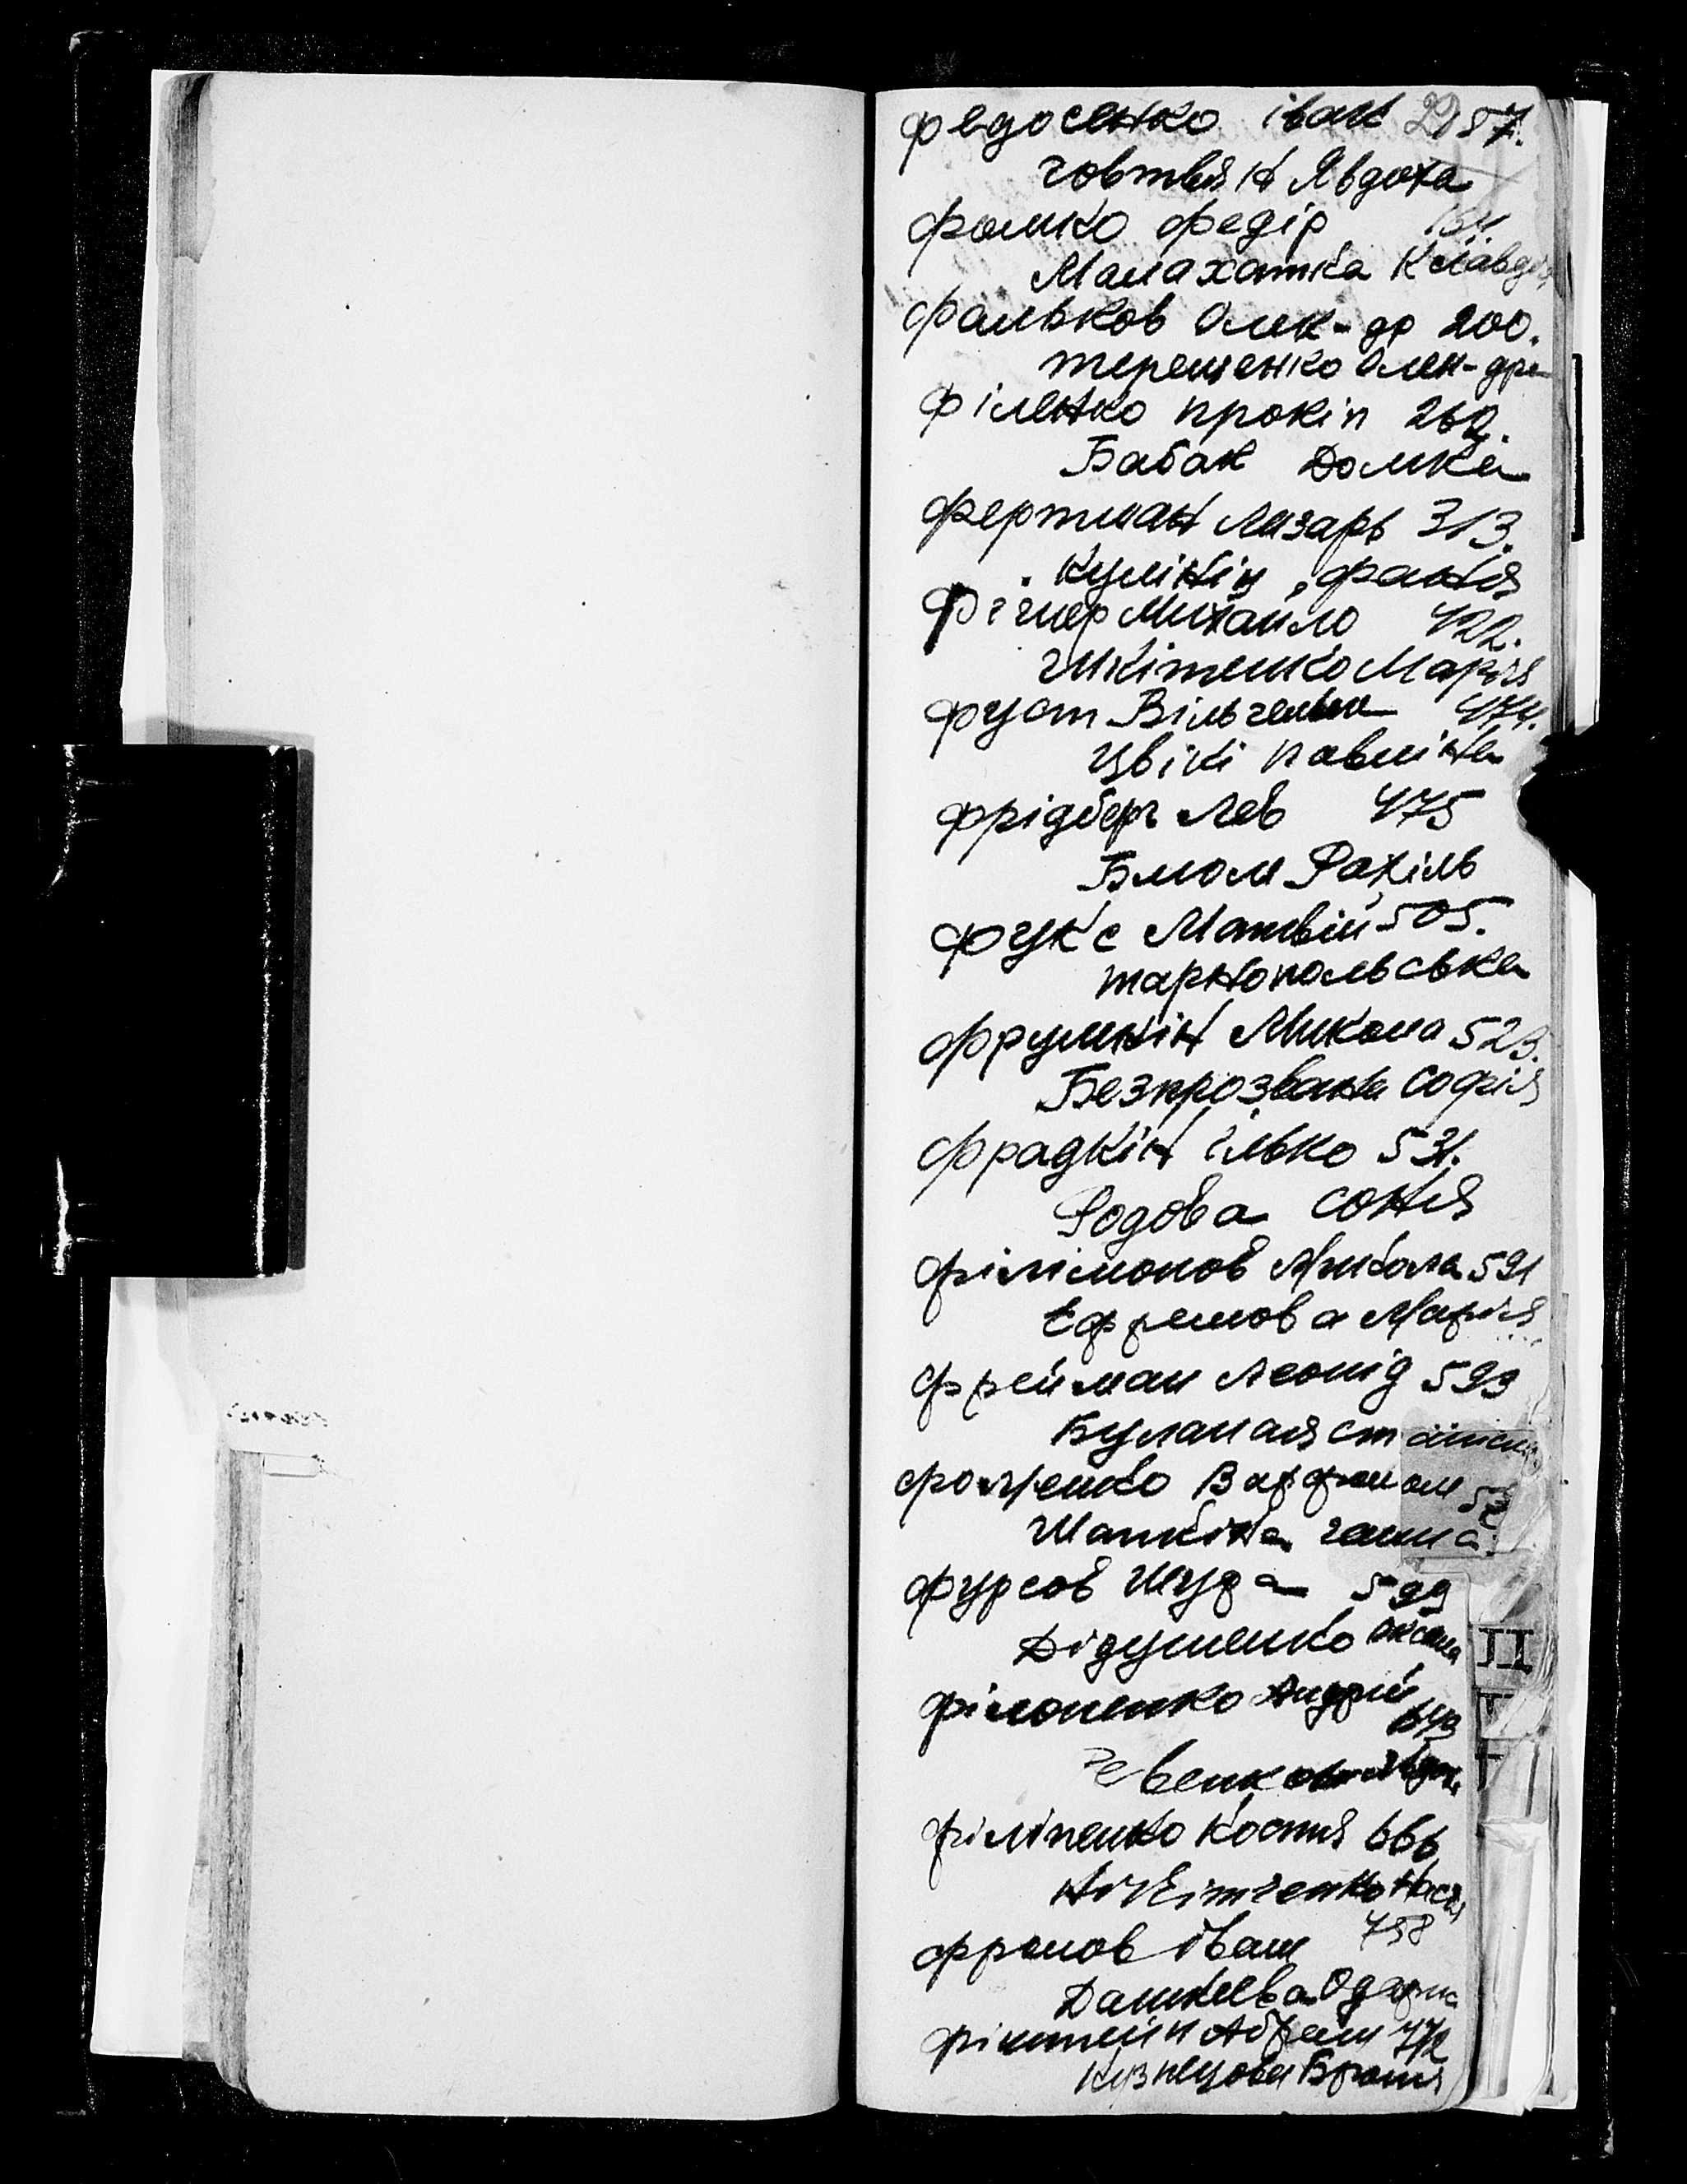 Федосенко Іван 57.
Говтвян Явдоха
Фомко Федір 164.
Малахатка Клавдія
Фальков Олек-др 200.
Терещенко Олек-дра
Філенко Прокіп 262.
Бабак Домка
Фертман Лазарь 313.
Кулініч Фаня
Фігнер Михайло 422.
Нікітенко Марія
Фуст Вільгельм 474.
Цвікі Павліна
Фрідберг Лев 475
Блюм Рахіль
Фукс Матвій 505.
Тарнопольська
Фрумкін Микола 523.
Безпрозвана Софія
Фрадкін Ілько 531.
Родова Соня
Філімонов Микола 591
Єфремова Марія
Фрейман Леонід 593
Буланая
Фоменко Варфолом
Шапкіна Ганна
Фурсов Шура 599
Дідушенко Оксана
Філоненко Андрій
643
Філіпенко Костя 666
Нікітченко Настя
Фролов Іван 758
Дашкеева Одарка
Фінштейн Абрам 772
Кузнецова Броня
II